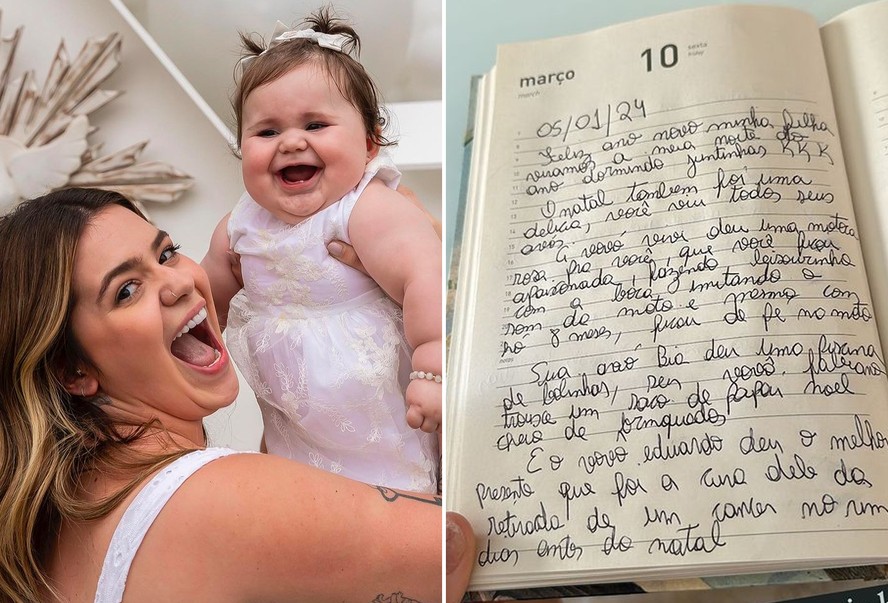 março
10
sexta
friday
05/01/24
Feliz ano novo minha filha
viramos a meia noite do
ano dormindo juntinhas KKK
O natal também foi uma
delícia, você viu todos seus
avós.
A vovó vivi deu uma motoca
rosa pra você, que você ficou
apaixonada, fazendo beisourinha
com a boca imitando o
som da moto e mesmo com
só 8 meses, ficou de pé na moto
Sua avó Bia deu uma piscina
de bolinhas, seu vovô fabiano
trouxe um saco de papai noel
cheio de brinquedos
E o vovô eduardo deu o melhor
presente que foi a cura dele da
retirada de um cancer no rim
dias antes do natal